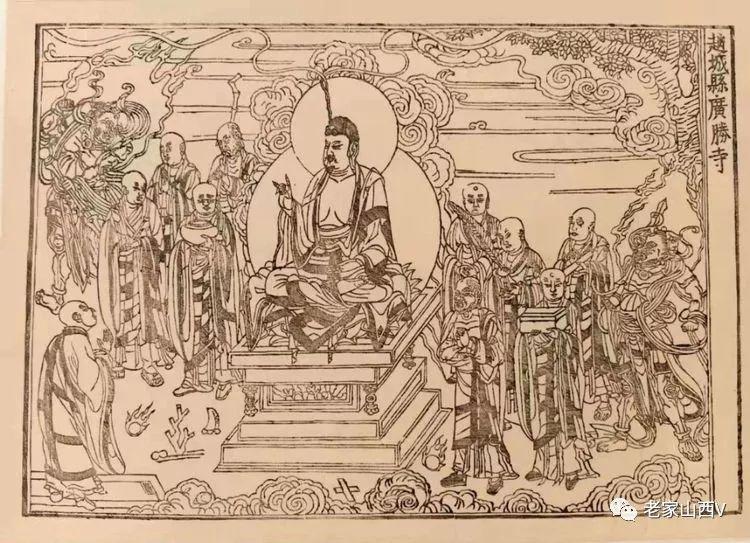 趙城縣廣勝寺
老家山西V